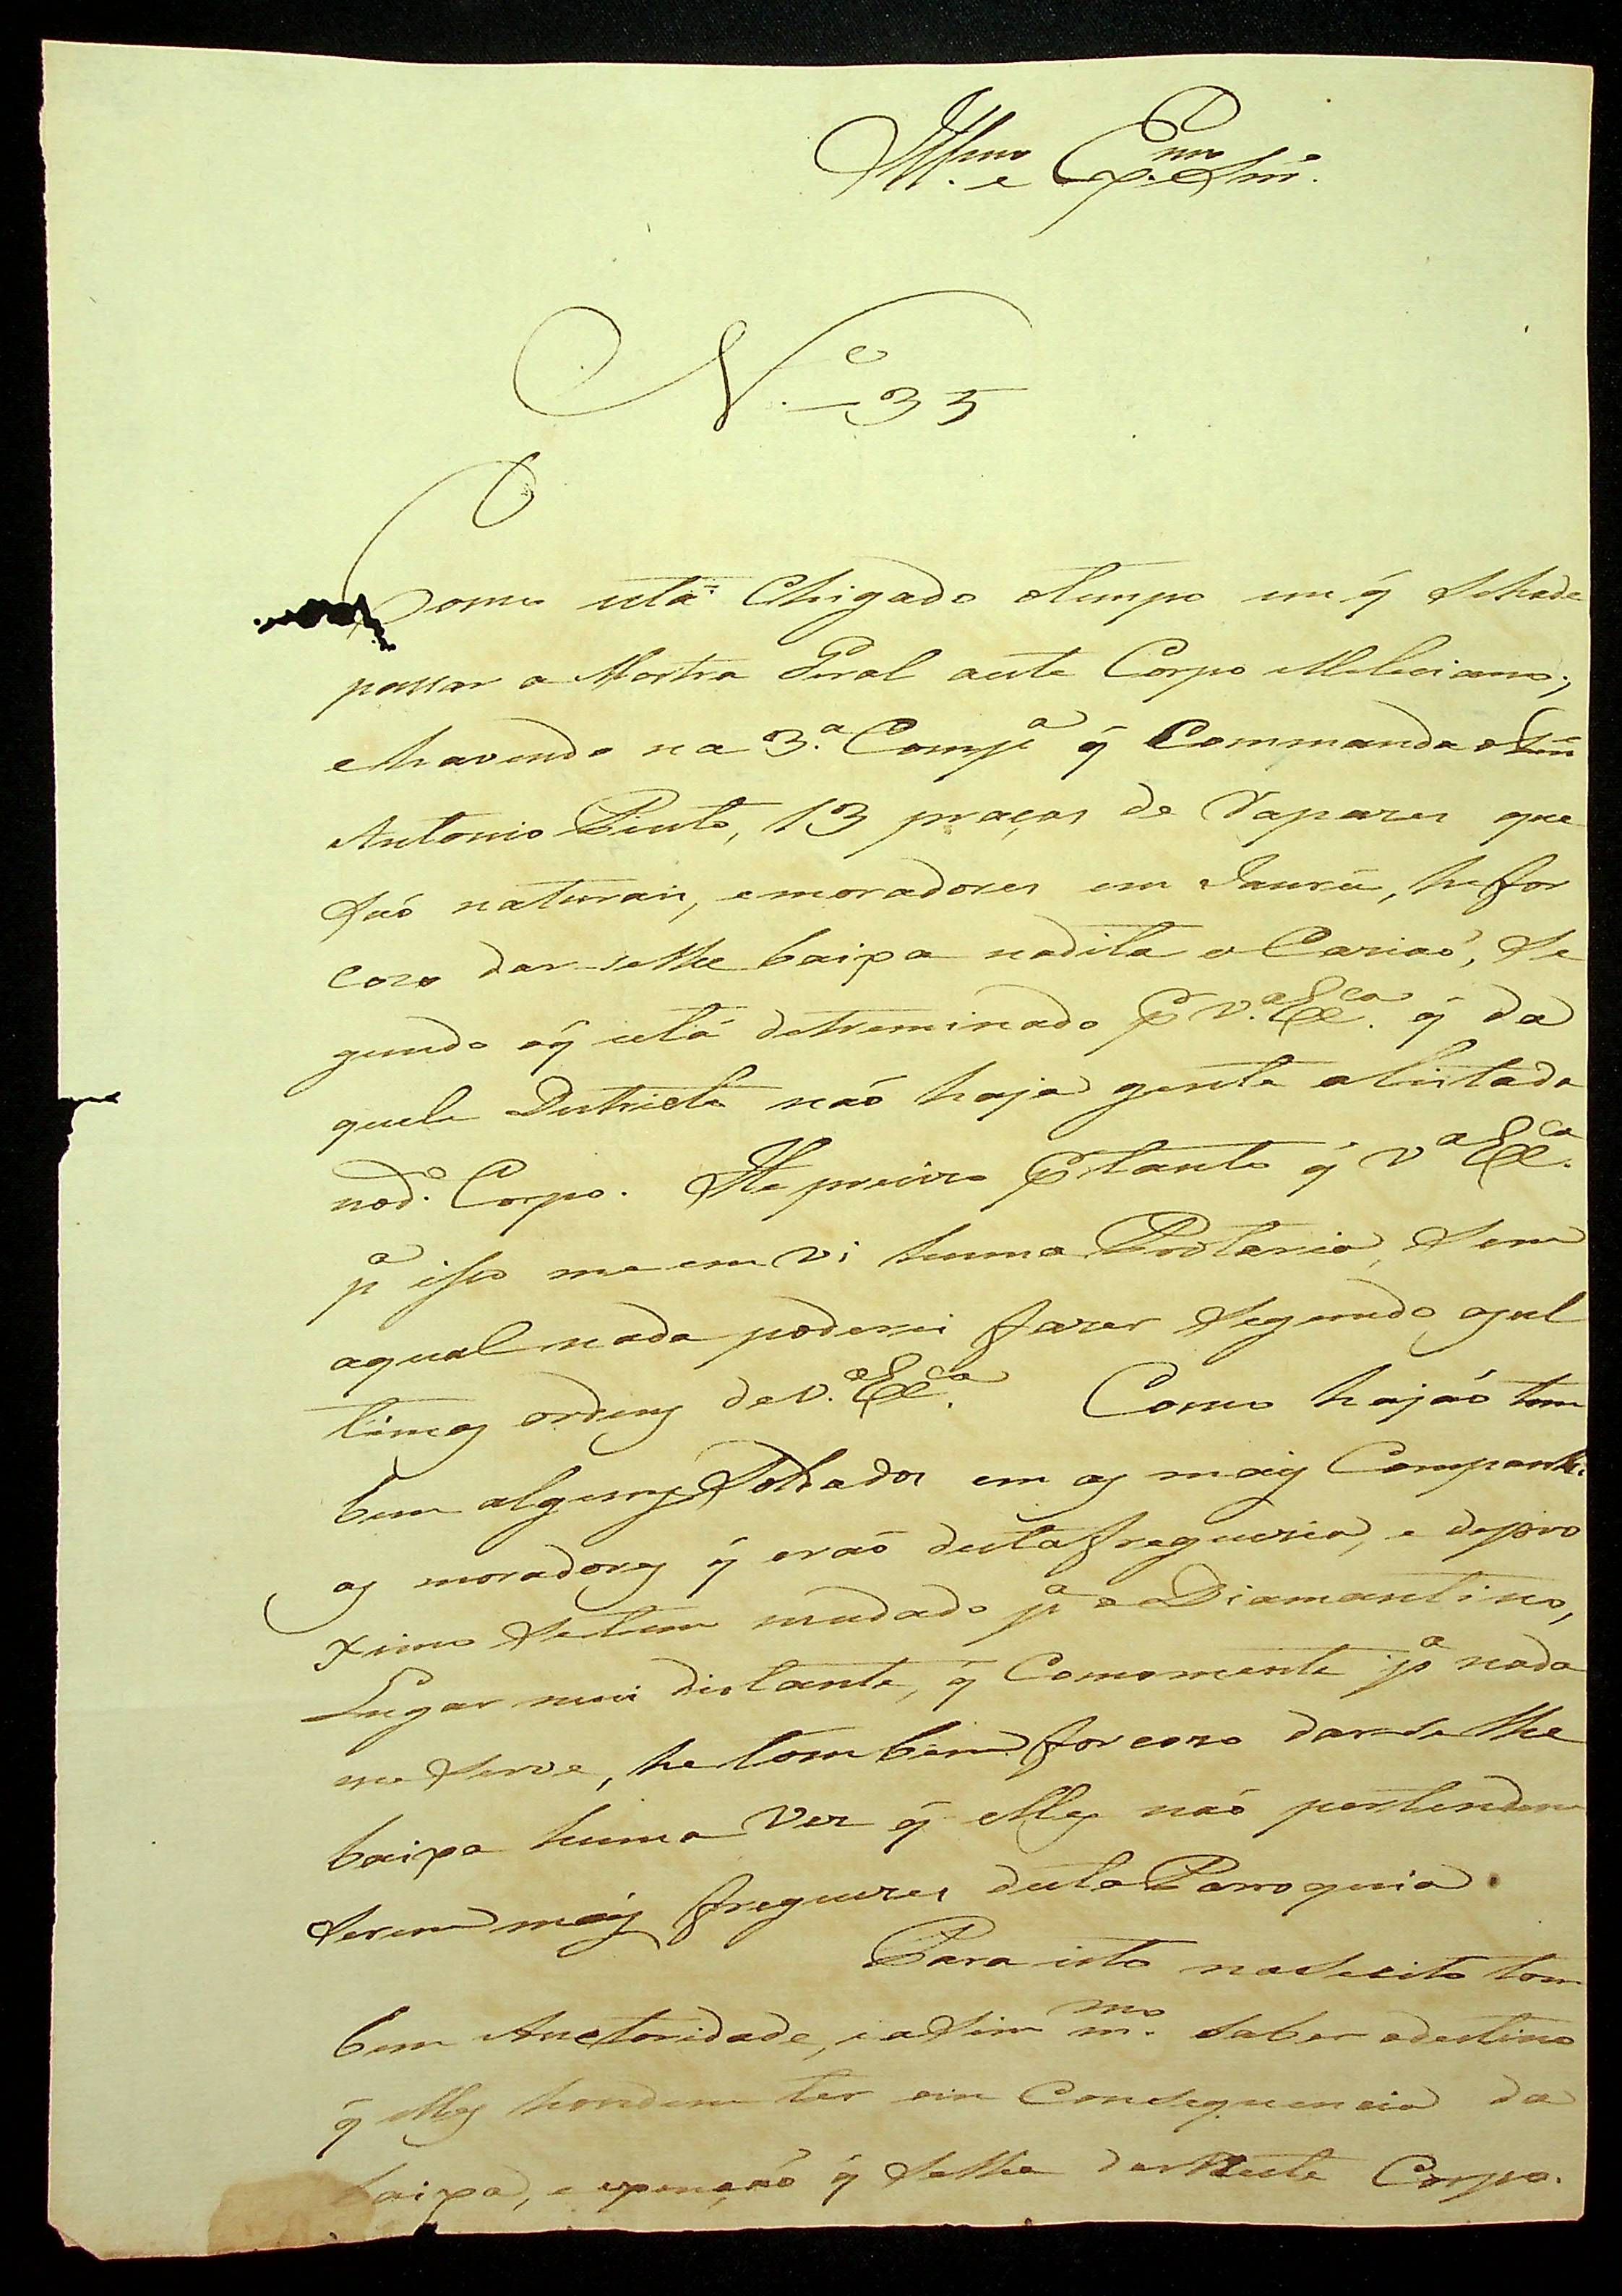 Ill.mo e Ex.mo Snr.
N.o 35
Como está Chegado otempo em q̃ sehade
passar a Mostra Geral aeste Corpo Meleciano;
ehavendo na 3.a Comp.a q̃ Commanda o Snr̃
Antonio Pinto, 13 praças de
Saõ naturais, emoradores em Jaurú, hefor
cozo dar-selhe baixa nadita o Caziaõ, Se
gundo oq̃ está detreminado p.r V.a Ex.ca q̃ da
quele Destricto naõ haja gente alistada
nod.o Corpo. He precizo p.r tanto q̃ V.a Ex.ca
p.a isso me em vi huma Portaria, Sem
aqual nada poderei fazer Segundo asul
timas ordens de V.a Ex.ca Como hajaõ tom
bem alguns Soldados em as mais Companhi
as moradores q̃ eraõ destafreguezia, e depro
ximo Setem mudado p.a o Diamantino,
Lugar mui distante, q̃ Comomente p.a nada
me Serve, he tombem forcozo dar-se lhe
baixa huma Vez q̃ elles naõ pertendem
Serem mais freguezes desta Parroquia.
Para isto nasecito tom
bem Auctoridade, e aSim m.mo Saber odestino
q̃ elles hondem ter em Consequencia da
baixa, e q̃ Selhe der Neste Corpo.